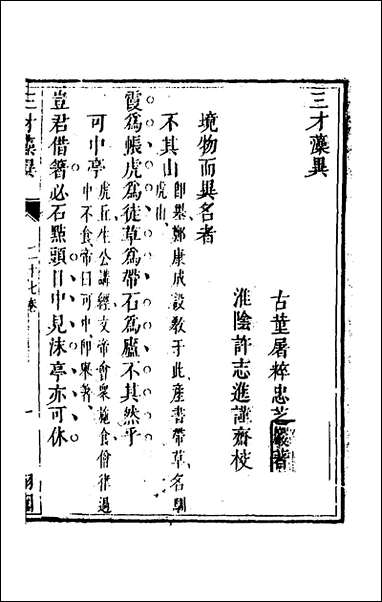 三才藻異
古堇屠粹忠芝巖著
淮陰許志進謹齋校
境物而異名者
不其山即畢鄭康成設教于此產書帶草名馴虎山
霞爲帳虎爲徒草爲帶石爲廬不其然乎
可中亭虎丘生公講經文帝會眾施食僧律過中不食帝曰可中卽舉箸
豈君借箸必石點頭日中見沬亭亦可休
三才藻異
二十七卷
一